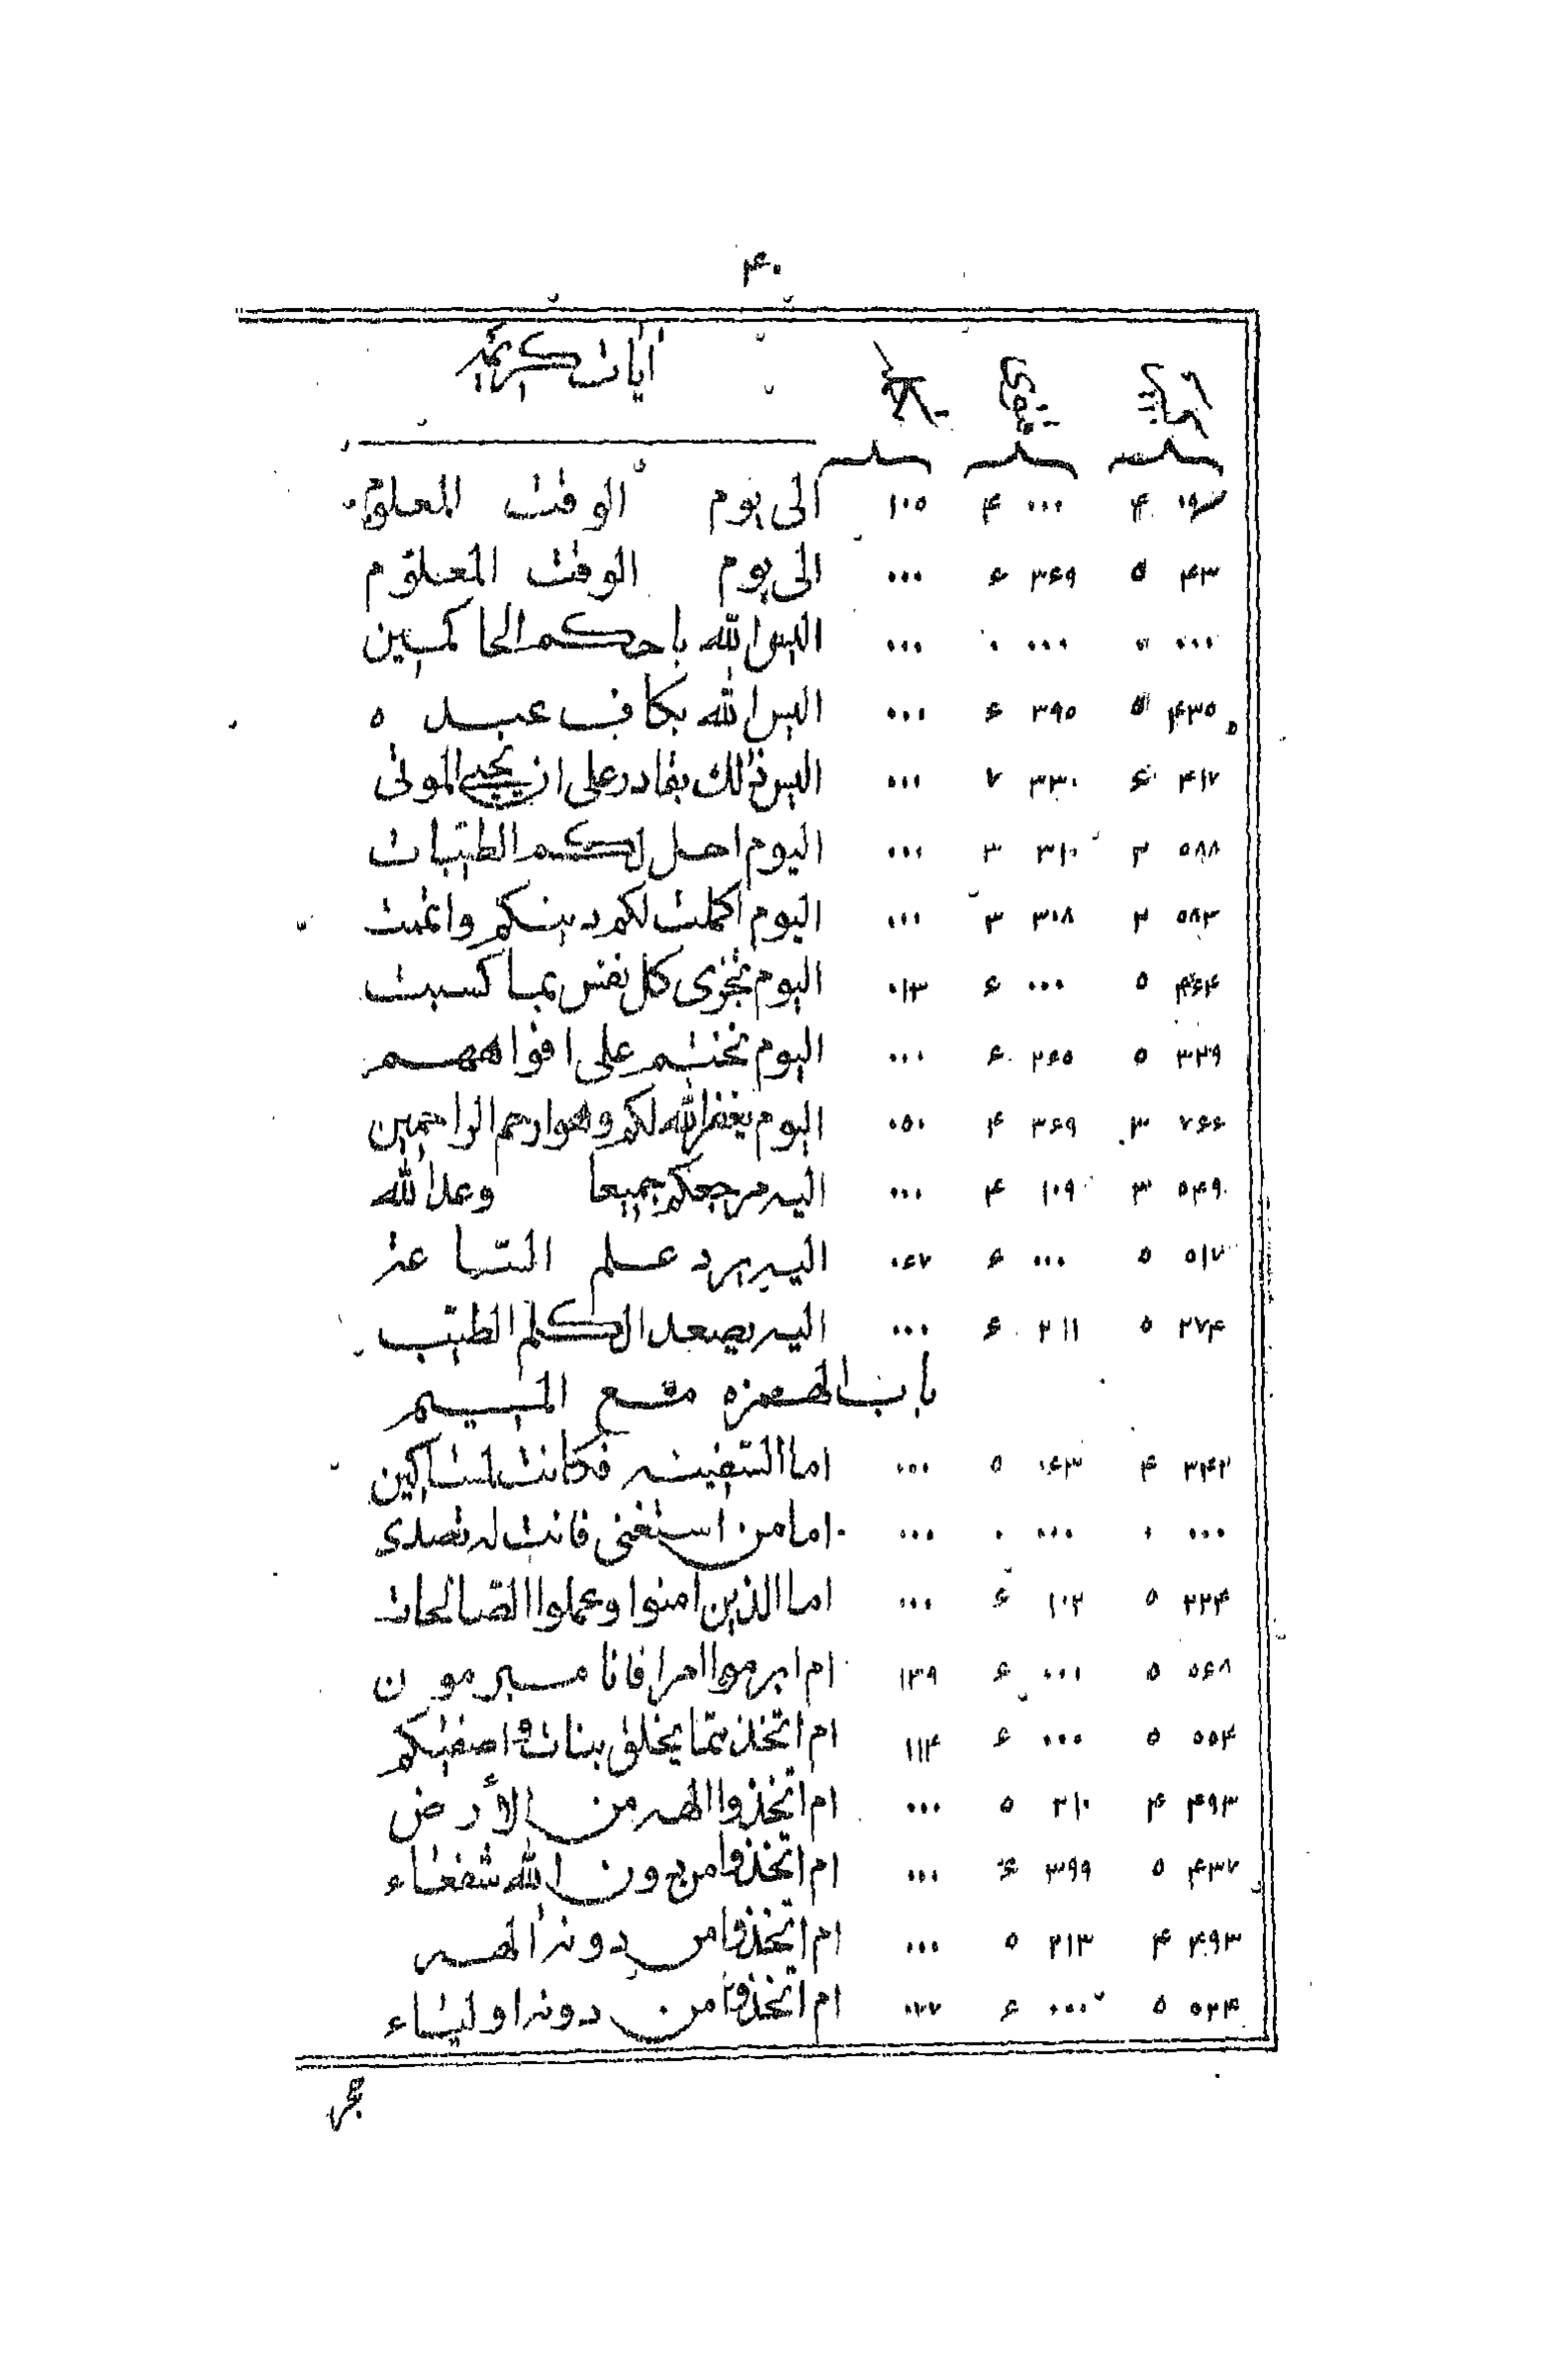 ۴۰
آیات کریمه
۴ ۰۰۰ ۴ ۱۰۵ الی یوم الوقت المعلوم
۴۳ ۵ ۳۶۹ ۶ ۰۰۰ الی یوم الوقت المعلوم
۰۰۰ ۰ ۰۰۰ ۰ ۰۰۰ الیس الله باحکم الحاکمین
۴۳۵ ۵ ۳۹۵ ۶ ۰۰۰ الیس الله بکاف عبده
۴۱۷ ۶ ۳۳۰ ۷ ۰۰۰ الیس ذلك بقادر علی ان یحیی الموتی
۵۸۸ ۲ ۳۱۰ ۳ ۰۰۰ الیوم احل لکم الطیبات
۵۸۳ ۲ ۳۰۸ ۳ ۰۰۰ الیوم اکملت لکم دینکم واتممت
۴۶۴ ۵ ۰۰۰ ۶ ۰۱۳ الیوم تجزی کل نفس بما کسبت
۳۲۹ ۵ ۲۶۵ ۶ ۰۰۰ الیوم نختم علی افواههم
۷۶۶ ۳ ۳۶۹ ۴ ۰۵۰ الیوم یغفر الله لکم وهو ارحم الراحمین
۵۴۹ ۳ ۱۰۹ ۴ ۰۰۰ الیه مرجعکم جمیعا وعد الله
۵۱۷ ۵ ۰۰۰ ۶ ۰۶۷ الیه یرد علم الساعة
۲۷۴ ۵ ۲۱۱ ۶ ۰۰۰ الیه یصعد الکلم الطیب
باب الهمزه مع المیم
۳۴۲ ۴ ۰۶۳ ۵ ۰۰۰ اما السفینه فکانت لمساکین
۰۰۰ ۰ ۰۰۰ ۰ ۰۰۰ اما من استغنی فانت له تصدی
۲۲۴ ۵ ۱۰۲ ۶ ۰۰۰ اما الذین امنوا وعملوا الصالحات
۵۶۸ ۵ ۰۰۱ ۶ ۱۳۹ ام ابرموا امرا فانا مبرمون
۵۵۴ ۵ ۰۰۰ ۶ ۱۱۴ ام اتخذ مما یخلق بنات واصفیکم
۴۹۳ ۴ ۲۱۰ ۵ ۰۰۰ ام اتخذوا الهه من الأرض
۴۳۷ ۵ ۳۹۹ ۶ ۰۰۰ ام اتخذوا من دون الله شفعاء
۴۹۳ ۴ ۲۱۳ ۵ ۰۰۰ ام اتخذوا من دونه الهه
۵۲۴ ۵ ۰۰۰ ۶ ۰۷۷ ام اتخذوا من دونه اولیاء